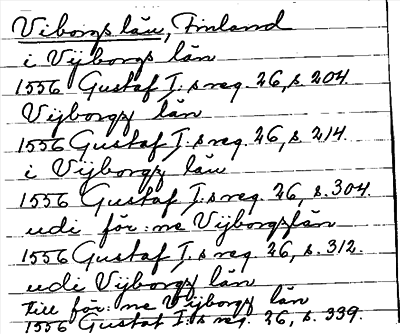 Viborgs län, Finland
i Vijborgs län
1556 Gustaf I.s reg. 26, s. 204.
Vijborgz län
1556 Gustaf I.s reg. 26, s. 214.
i Vijborgz län
1556 Gustaf I.s reg. 26, s. 304.
udi för:ne Vijborgzlän
1556 Gustaf I.s reg. 26, s. 312.
udi Vijborgz län
till för:ne Vijborgz län
1556 Gustaf I.s reg. 26, s. 339.